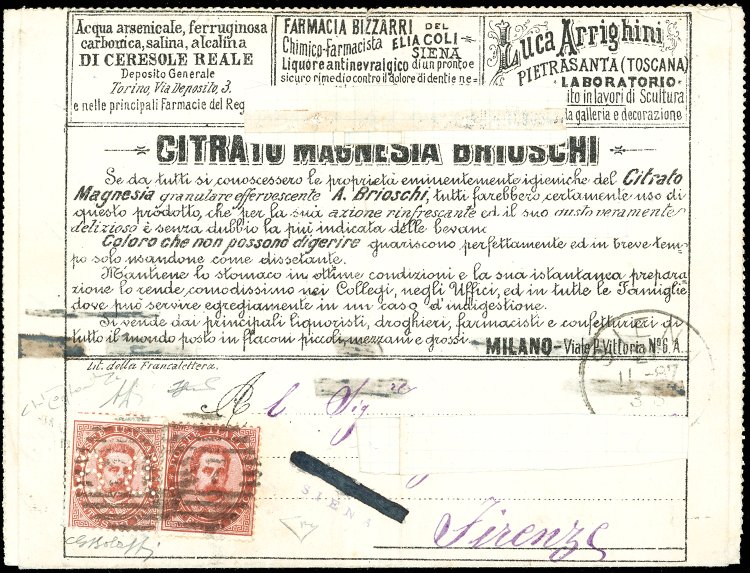 Acqua arsenicale, ferruginosa
carbonica, salina, alcalina
DI CERESOLE REALE
Deposito Generale
Torino, Via Deposito, 3.
e nelle principali Farmacie del Reg
FARMACIA BIZZARRI DEL
Chimico-farmacista ELIA COLI
SIENA
Liquore antinevralgico di un pronto e
sicuro rimedio contro il dolore di denti e ne
Luca Arrighini
PIETRASANTA (TOSCANA)
LABORATORIO
ito in lavori di Scultura
la galleria e decorazione
CITRATO MAGNESIA BRIOSCHI
Se da tutti si conoscessero le proprietà eminentemente igieniche del Citrato
Magnesia granulare effervescente A. Brioschi, tutti farebbero certamente uso di
questo prodotto, che per la sua azione rinfrescante ed il suo gusto veramente
delizioso è senza dubbio la più indicata delle bevan
Coloro che non possono digerire guariscono perfettamente ed in breve tem-
po solo usandone come dissetante.
Mantiene lo stomaco in ottime condizioni e la sua istantanea prepara
zione lo rende comodissimo nei Collegi, negli Uffici, ed in tutte le Famiglie
dove può servire egregiamente in un caso d'indigestione.
Si vende dai principali liquoristi, droghieri, farmacisti e confetturieri di
tutto il mondo posto in flaconi piccoli, mezzani e grossi - MILANO - Viale P. Vittoria Nº 6. A.
Lit. della Francalettera.
11-87
Al Sigre
SIENA
Firenze